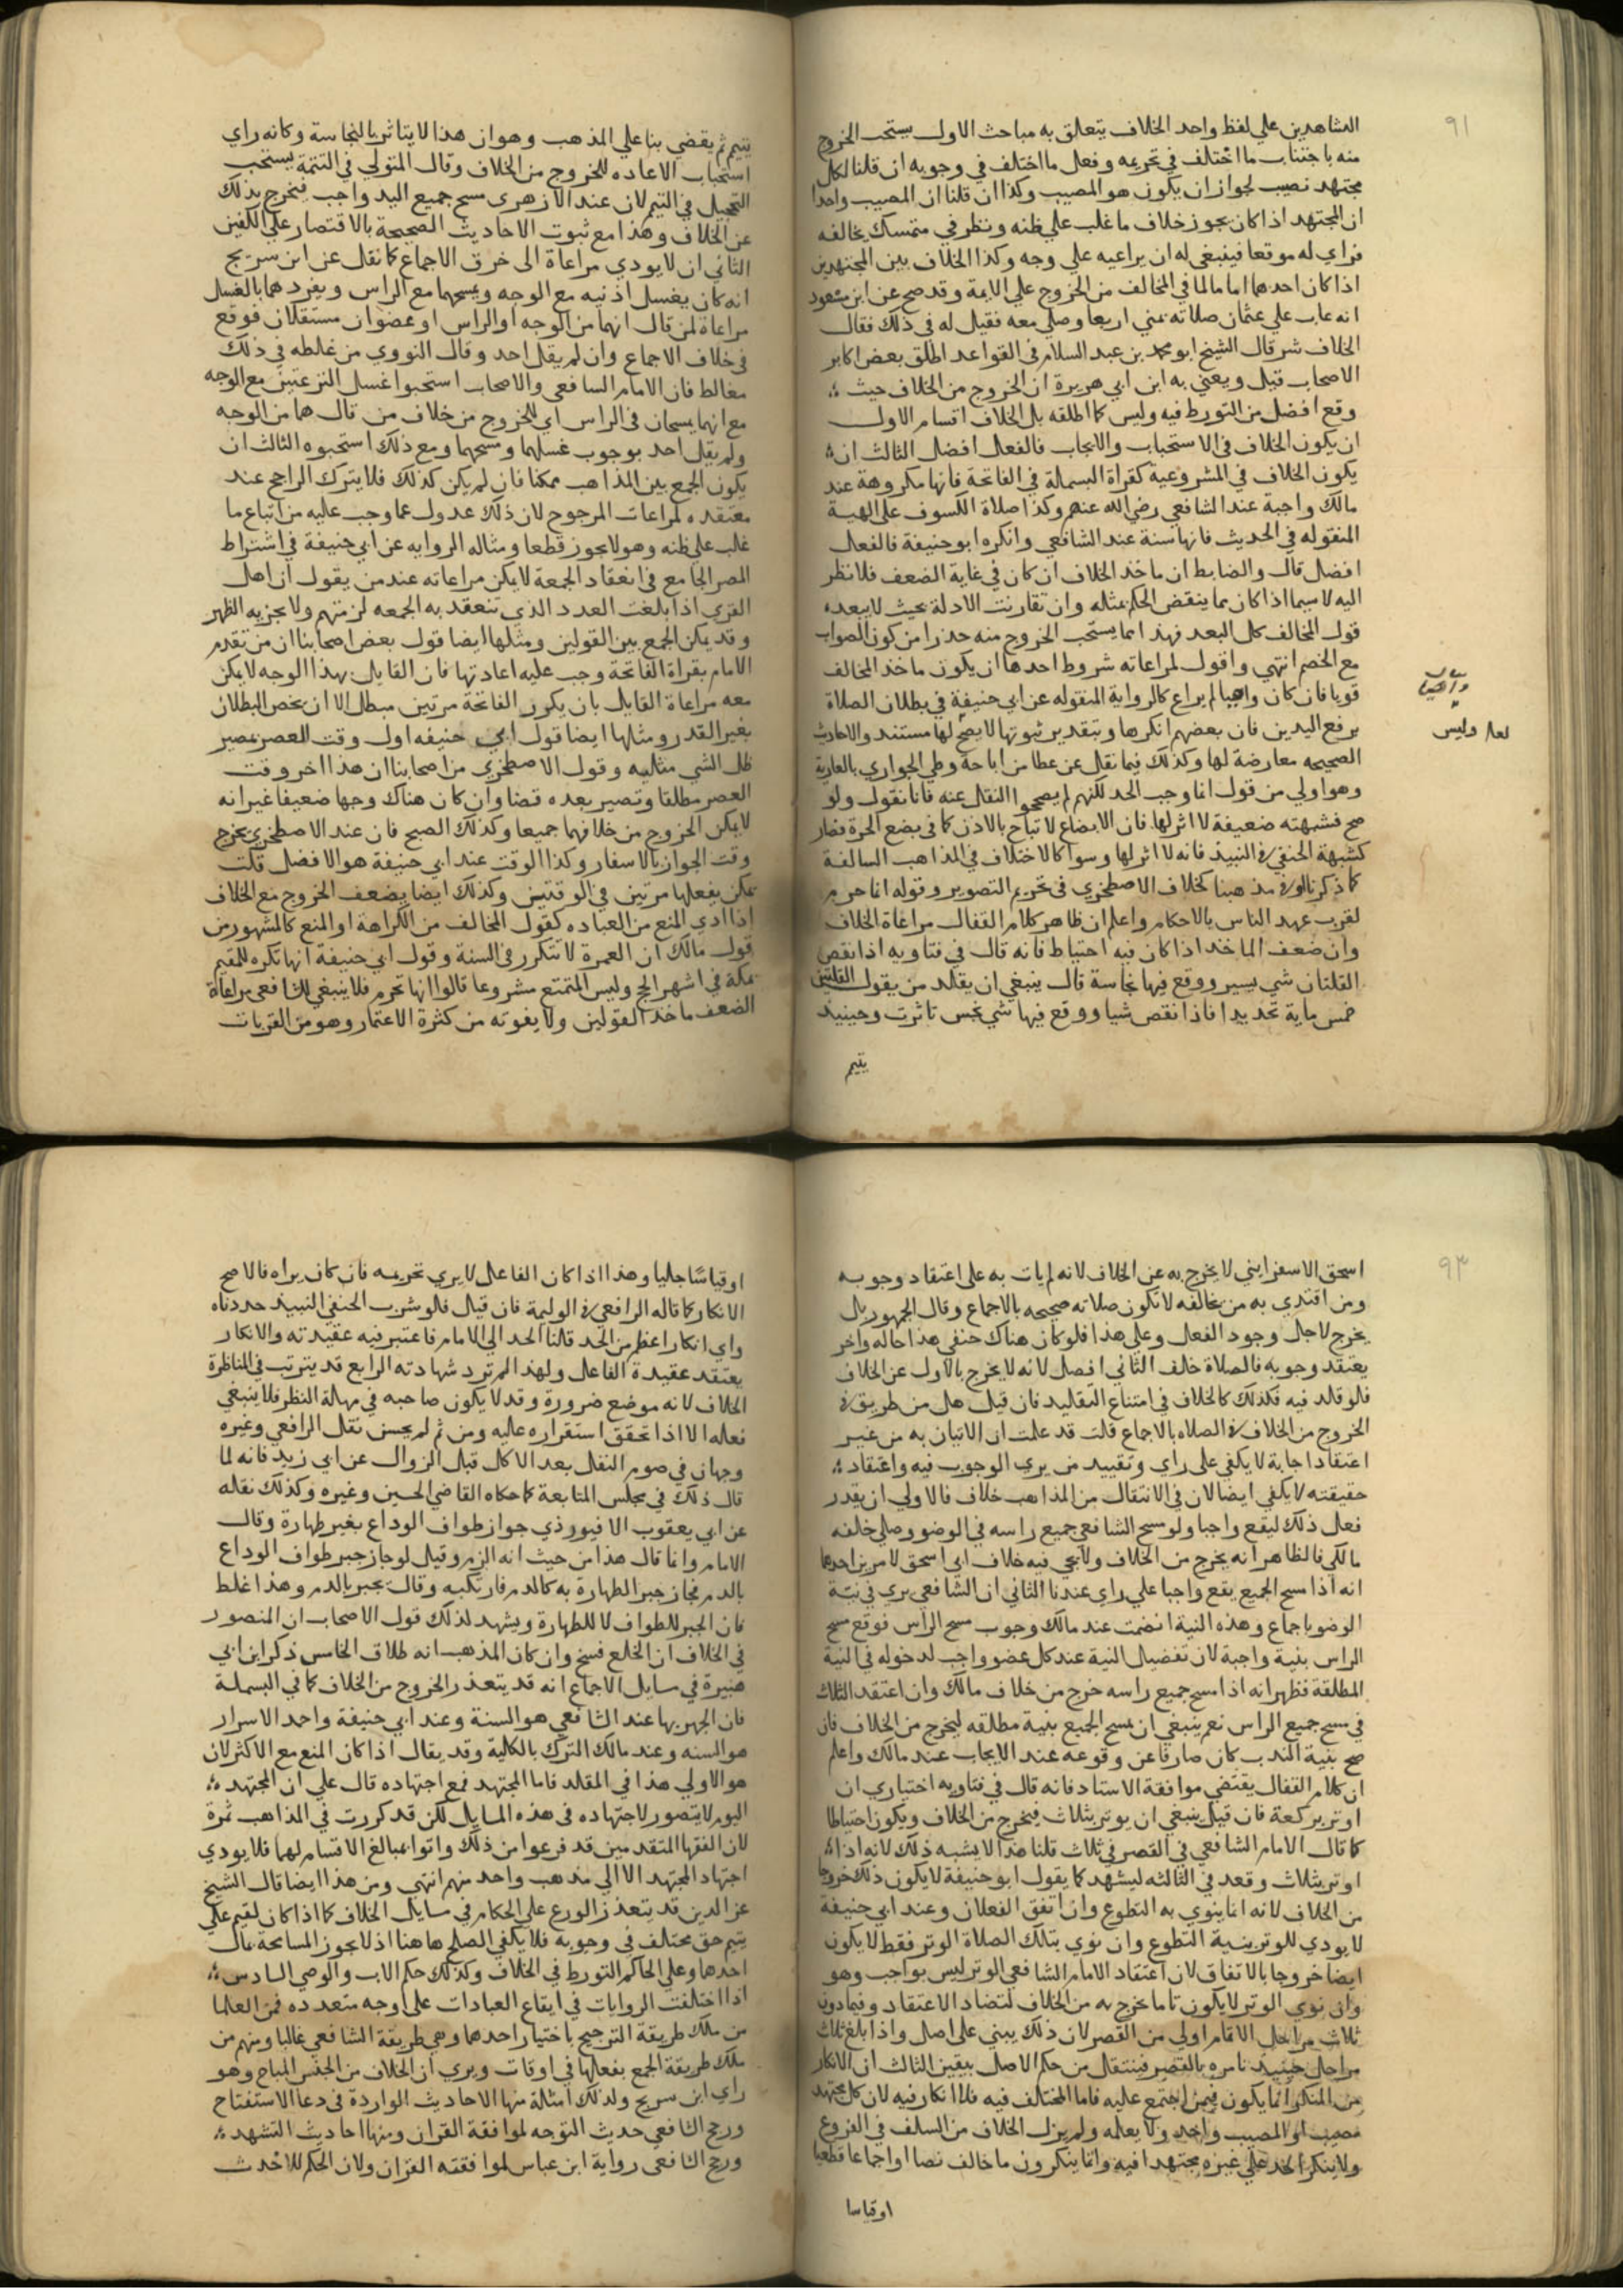 ٩١
الشاهدين علي لفظ واحد الخلاف يتعلق به مباحث الاول يستحب الخروج
منه باجتناب ما اختلف في تحريمه وفعل ما اختلف في وجوبه ان قلنا لكل
مجتهد نصيب لجواز ان يكون هو المصيب وكذا ان قلنا ان المصيب واحدا
ان المجتهد اذا كان يجوز خلاف ما غلب علي ظنه ونظر في متمسك مخالفه
فراي له موقعا فينبغي له ان يراعيه علي وجه وكذا الخلاف بين المجتهدين
اذا كان احدهما اماما لما في المخالف من الخروج علي الايمة وقد صح عن ابن مسعود
انه عاب علي عثمان صلاته بمني اربعا وصلي معه فقيل له في ذلك فقال
الخلاف شر قال الشيخ ابو محمد بن عبد السلام في القواعد اطلق بعض اكابر
الاصحاب قيل ويعني به ابن ابي هريرة ان الخروج من الخلاف حيث
وقع افضل من التورط فيه وليس كما اطلقه بل الخلاف اقسام الاول
ان يكون الخلاف في الاستحباب والايجاب فالفعل افضل الثالث ان
يكون الخلاف في المشروعية كقراة البسملة في الفاتحة فانها مكروهة عند
مالك واجبة عند الشافعي رضي الله عنهم وكذا صلاة الكسوف علي الهية
المنقوله في الحديث فانها سنة عند الشافعي وانكره ابو حنيفة فالفعل
افضل قال والضابط ان ماخذ الخلاف ان كان في غاية الضعف فلا نظر
اليه لا سيما اذا كان مما ينقض الحكم بمثله وان تقارنت الادلة بحيث لا يبعده
قول المخالف كل البعد فهذا مما يستحب الخروج منه حذرا من كون الصواب
مع الخصم انتهي واقول لمراعاته شروط احدها ان يكون ماخذ المخالف
قويا فان كان واهيا لم يراع كالرواية المنقوله عن ابي حنيفة في بطلان الصلاة
برفع اليدين فان بعضهم انكرها وبتقدير ثبوتها لا يصح لها مستند والاحاديث
لعل وليس
الصحيحه معارضة لها وكذلك فيما نقل عن عطا من اباحة وطي الجواري بالعارية
وهو اولي من قول انما وجب الحد لكنهم لم يصححوا النقل عنه فانا نقول ولو
صح فشبهته ضعيفة لا اثر لها فان الابضاع لا تباح بالاذن كما في بضع الحرة فصار
كشبهة الحنفي في النبيذ فانه لا اثر لها وسوا كالاختلاف في المذاهب السالفة
كما ذكرنا او في مذهبنا كخلاف الاصطخري في تحريم التصوير وقوله انما حرم
لقرب عهد الناس بالاحكام واعلم ان ظاهر كلام القفال مراعاة الخلاف
وان ضعف الماخذ اذا كان فيه احتياط فانه قال في فتاويه اذا نقص
القلتان شي يسير ووقع فيها نجاسة قال ينبغي ان يقلد من يقول القلتين
خمس ماية تحديدا فاذا نقص شيا ووقع فيها شي نجس تاثرت وحينيذ
يتيم
يتيم ثم يقضي بنا علي المذهب وهو ان هذا لا يتاثر بالنجاسة وكانه راي
استحباب الاعاده للخروج من الخلاف وقال المتولي في التتمة يستحب
التحجيل في التيمم لان عند الازهري مسح جميع اليد واجب فيخرج بذلك
عن الخلاف وهذا مع ثبوت الاحاديث الصحيحة بالاقتصار علي الكفين
الثاني ان لا يودي مراعاة الى خرق الاجماع كما نقل عن ابن سريج
انه كان يغسل اذنيه مع الوجه ويمسحهما مع الراس ويفردهما بالغسل
مراعاة لمن قال انهما من الوجه او الراس او عضوان مستقلان فوقع
في خلاف الاجماع وان لم يقل احد وقال النووي من غلطه في ذلك
مغالط فان الامام الشافعي والاصحاب استحبوا غسل النزعتين مع الوجه
مع انهما يمسحان في الراس اي للخروج من خلاف من قال هما من الوجه
ولم يقل احد بوجوب غسلهما ومسحهما ومع ذلك استحبوه الثالث ان
يكون الجمع بين المذاهب ممكنا فان لم يكن كذلك فلا يترك الراجح عند
معتقده لمراعات المرجوح لان ذلك عدول عما وجب عليه من اتباع ما
غلب علي ظنه وهو لا يجوز قطعا ومثاله الروايه عن ابي حنيفة في اشتراط
المصر الجامع في انعقاد الجمعة لا يمكن مراعاته عند من يقول ان اهل
القري اذا بلغت العدد الذي تنعقد به الجمعه لزمتهم ولا يجزيه الظهر
وقد يمكن الجمع بين القولين ومثلها ايضا قول بعض اصحابنا ان من تقدم
الامام بقراة الفاتحة وجب عليه اعادتها فان القايل بهذا الوجه لا يمكن
معه مراعاة القايل بان يكرر الفاتحة مرتين مبطل الا ان يخص البطلان
بغير القدر ومثلها ايضا قول ابي حنيفه اول وقت العصر مصير
ظل الشي مثليه وقول الاصطخري من اصحابنا ان هذا اخر وقت
العصر مطلقا وتصير بعده قضا وان كان هناك وجها ضعيفا غير انه
لا يمكن الخروج من خلافهما جميعا وكذلك الصبح فان عند الاصطخري يخرج
وقت الجواز بالاسفار وكذا الوقت عند ابي حنيفة هو الافضل قلت
يمكن بفعلها مرتين في الوقتين وكذلك ايضا يضعف الخروج مع الخلاف
اذا ادي المنع من العباده كقول المخالف من الكراهة او المنع كالمشهور من
قول مالك ان العمرة لا تتكرر في السنة وقول ابي حنيفة انها تكره للمقيم
بمكة في اشهر الحج وليس المتمتع مشروعا قالوا انها تحرم فلا ينبغي للشافعي مراعاة
الضعف ماخذ القولين ولا يفوته من كثرة الاعتمار وهو من القربات
٩٣
اسحق الاسفرايني لا يخرج به عن الخلاف لانه لم يات به على اعتقاد وجوبه
ومن اقتدي به من يخالفه لا تكون صلاته صحيحه بالاجماع وقال الجمهور بل
يخرج لاجل وجود الفعل وعلي هذا فلو كان هناك حنفي هذا حاله واخر
يعتقد وجوبه فالصلاة خلف الثاني افضل لانه لا يخرج بالاول عن الخلاف
فلو قلد فيه فكذلك كالخلاف في امتناع التقليد فان قيل هل من طريق في
الخروج من الخلاف في الصلاه بالاجماع قلت قد علمت ان الاتيان به من غير
اعتقاد اجابة لا يكفي على راي وتقييد من يري الوجوب فيه واعتقاد
حقيقته لا يكفي ايضا لان في الانتقال من المذاهب خلاف فالاولي ان يقدر
فعل ذلك ليقع واجبا ولو مسح الشافعي جميع راسه في الوضو وصلي خلفه
مالكي فالظاهر انه يخرج من الخلاف ولا يجي فيه خلاف ابي اسحق لامرين احدهما
انه اذا مسح الجميع يقع واجبا علي راي عندنا الثاني ان الشافعي يري في نية
الوضو باجماع وهذه النية انضمت عند مالك وجوب مسح الراس فوقع مسح
الراس بنية واجبة لان تفصيل النية عند كل عضو واجب لدخوله في النية
المطلقة فظهر انه اذا مسح جميع راسه خرج من خلاف مالك وان اعتقد الثلاث
في مسح جميع الراس نعم ينبغي ان يمسح الجميع بنية مطلقه ليخرج من الخلاف فان
مسح بنية الندب كان صارفا عن وقوعه عند الايجاب عند مالك واعلم
ان كلام القفال يقتضي موافقة الاستاد فانه قال في فتاويه اختياري ان
اوتر بركعة فان قيل ينبغي ان يوتر بثلاث فيخرج من الخلاف ويكون احتياطا
كما قال الامام الشافعي في القصر في ثلاث قلنا هذا لا يشبه ذلك لانه اذا
اوتر بثلاث وقعد في الثالثه ليشهد كما يقول ابو حنيفة لا يكون ذلك خروجا
من الخلاف لانه انما ينوي به التطوع وان اتفق الفعلان وعند ابي حنيفة
لا يودي للوتر بنية التطوع وان نوي بتلك الصلاة الوتر فقط لا يكون
ايضا خروجا بالاتفاق لان اعتقاد الامام الشافعي الوتر ليس بواجب وهو
وان نوي الوتر لا يكون تاما مخرج به من الخلاف لتضاد الاعتقاد وفيما دون
ثلاث مراحل الاتمام اولي من القصر لان ذلك يبني على اصل واذا بلغ ثلاث
مراحل حينيذ نامره بالقصر فينتقل من حكم الاصل بيقين الثالث ان الانكار
من المنكر انما يكون فيمن اجتمع عليه فاما المختلف فيه فلا انكار فيه لان كل مجتهد
مصيب او المصيب واحد ولا يعلمه ولم يزل الخلاف من السلف في الفروع
ولا ينكر احد علي غيره مجتهدا فيه وانما ينكرون ما خالف نصا او اجماعا قطعيا
او قياسا
او قياسًا جليا وهذا اذا كان الفاعل لا يري تحريمه فان كان يراه فالاصح
الانكار كما قاله الرافعي في الوليمة فان قيل فلو شرب الحنفي النبيذ حددناه
واي انكار اعظم من الحد قلنا الحد الي الامام فاعتبر فيه عقيدته والانكار
يعتقد عقيدة الفاعل ولهذا لم ترد شهادته الرابع قد يترتب في المناظرة
الخلاف لانه موضع ضرورة وقد لا يكون صاحبه في مهلة النظر فلا ينبغي
فعله الا اذا تحقق استقراره عليه ومن ثم لم يحسن نقل الرافعي وغيره
وجها في صوم النفل بعد الاكل قبل الزوال عن ابي زيد فانه لما
قال ذلك في مجلس المتابعة كما حكاه القاضي الحسين وغيره وكذلك نقله
عن ابي يعقوب الافيورذي جواز طواف الوداع بغير طهارة وقال
الامام وانما قال هذا من حيث انه الزم وقيل لو جاز جبر طواف الوداع
بالدم فجاز جبر الطهارة به كالدم فارتكبه وقال يجبر بالدم وهذا غلط
فان الجبر للطواف لا للطهارة ويشهد لذلك قول الاصحاب ان المنصور
في الخلاف ان الخلع فسخ وان كان المذهب انه طلاق الخامس ذكر ابن ابي
هبيرة في مسايل الاجماع انه قد يتعذر الخروج من الخلاف كما في البسملة
فان الجهر بها عند الشافعي هو السنة وعند ابي حنيفة واحمد الاسرار
هو السنه وعند مالك الترك بالكلية وقد يقال اذا كان المنع مع الاكثر لان
هو الاولي هذا في المقلد فاما المجتهد فمع اجتهاده قال علي ان المجتهد
اليوم لا يتصور لاجتهاده في هذه المسايل لكن قد كررت في المذاهب ثمرة
لان الفقها المتقدمين قد فرعوا من ذلك واتوا بمبالغ الاقسام لهما فلا يودي
اجتهاد المجتهد الا الي مذهب واحد منهم انتهي ومن هذا ايضا قال الشيخ
عز الدين قد يتعذر الورع علي الحكام في مسايل الخلاف كما اذا كان لقيم علي
يتيم حق مختلف في وجوبه فلا يكفي الصلح هاهنا اذ لا يجوز المسامحة بمال
احدهما وعلي الحاكم التورط في الخلاف وكذلك حكم الاب والوصي السادس
اذا اختلفت الروايات في ايقاع العبادات على اوجه متعدده فمن العلما
من سلك طريقة الترجيح باختيار احدها وهي طريقة الشافعي غالبا ومنهم من
سلك طريقة الجمع بفعلها في اوقات ويري ان الخلاف من الجنس المباح وهو
راي ابن سريج ولذلك امثلة منها الاحاديث الواردة في دعا الاستفتاح
ورجح الشافعي حديث التوجه لموافقة القران ومنها احاديث التشهد
ورجح الشافعي رواية ابن عباس لموافقته القران ولان الحكم للاحدث